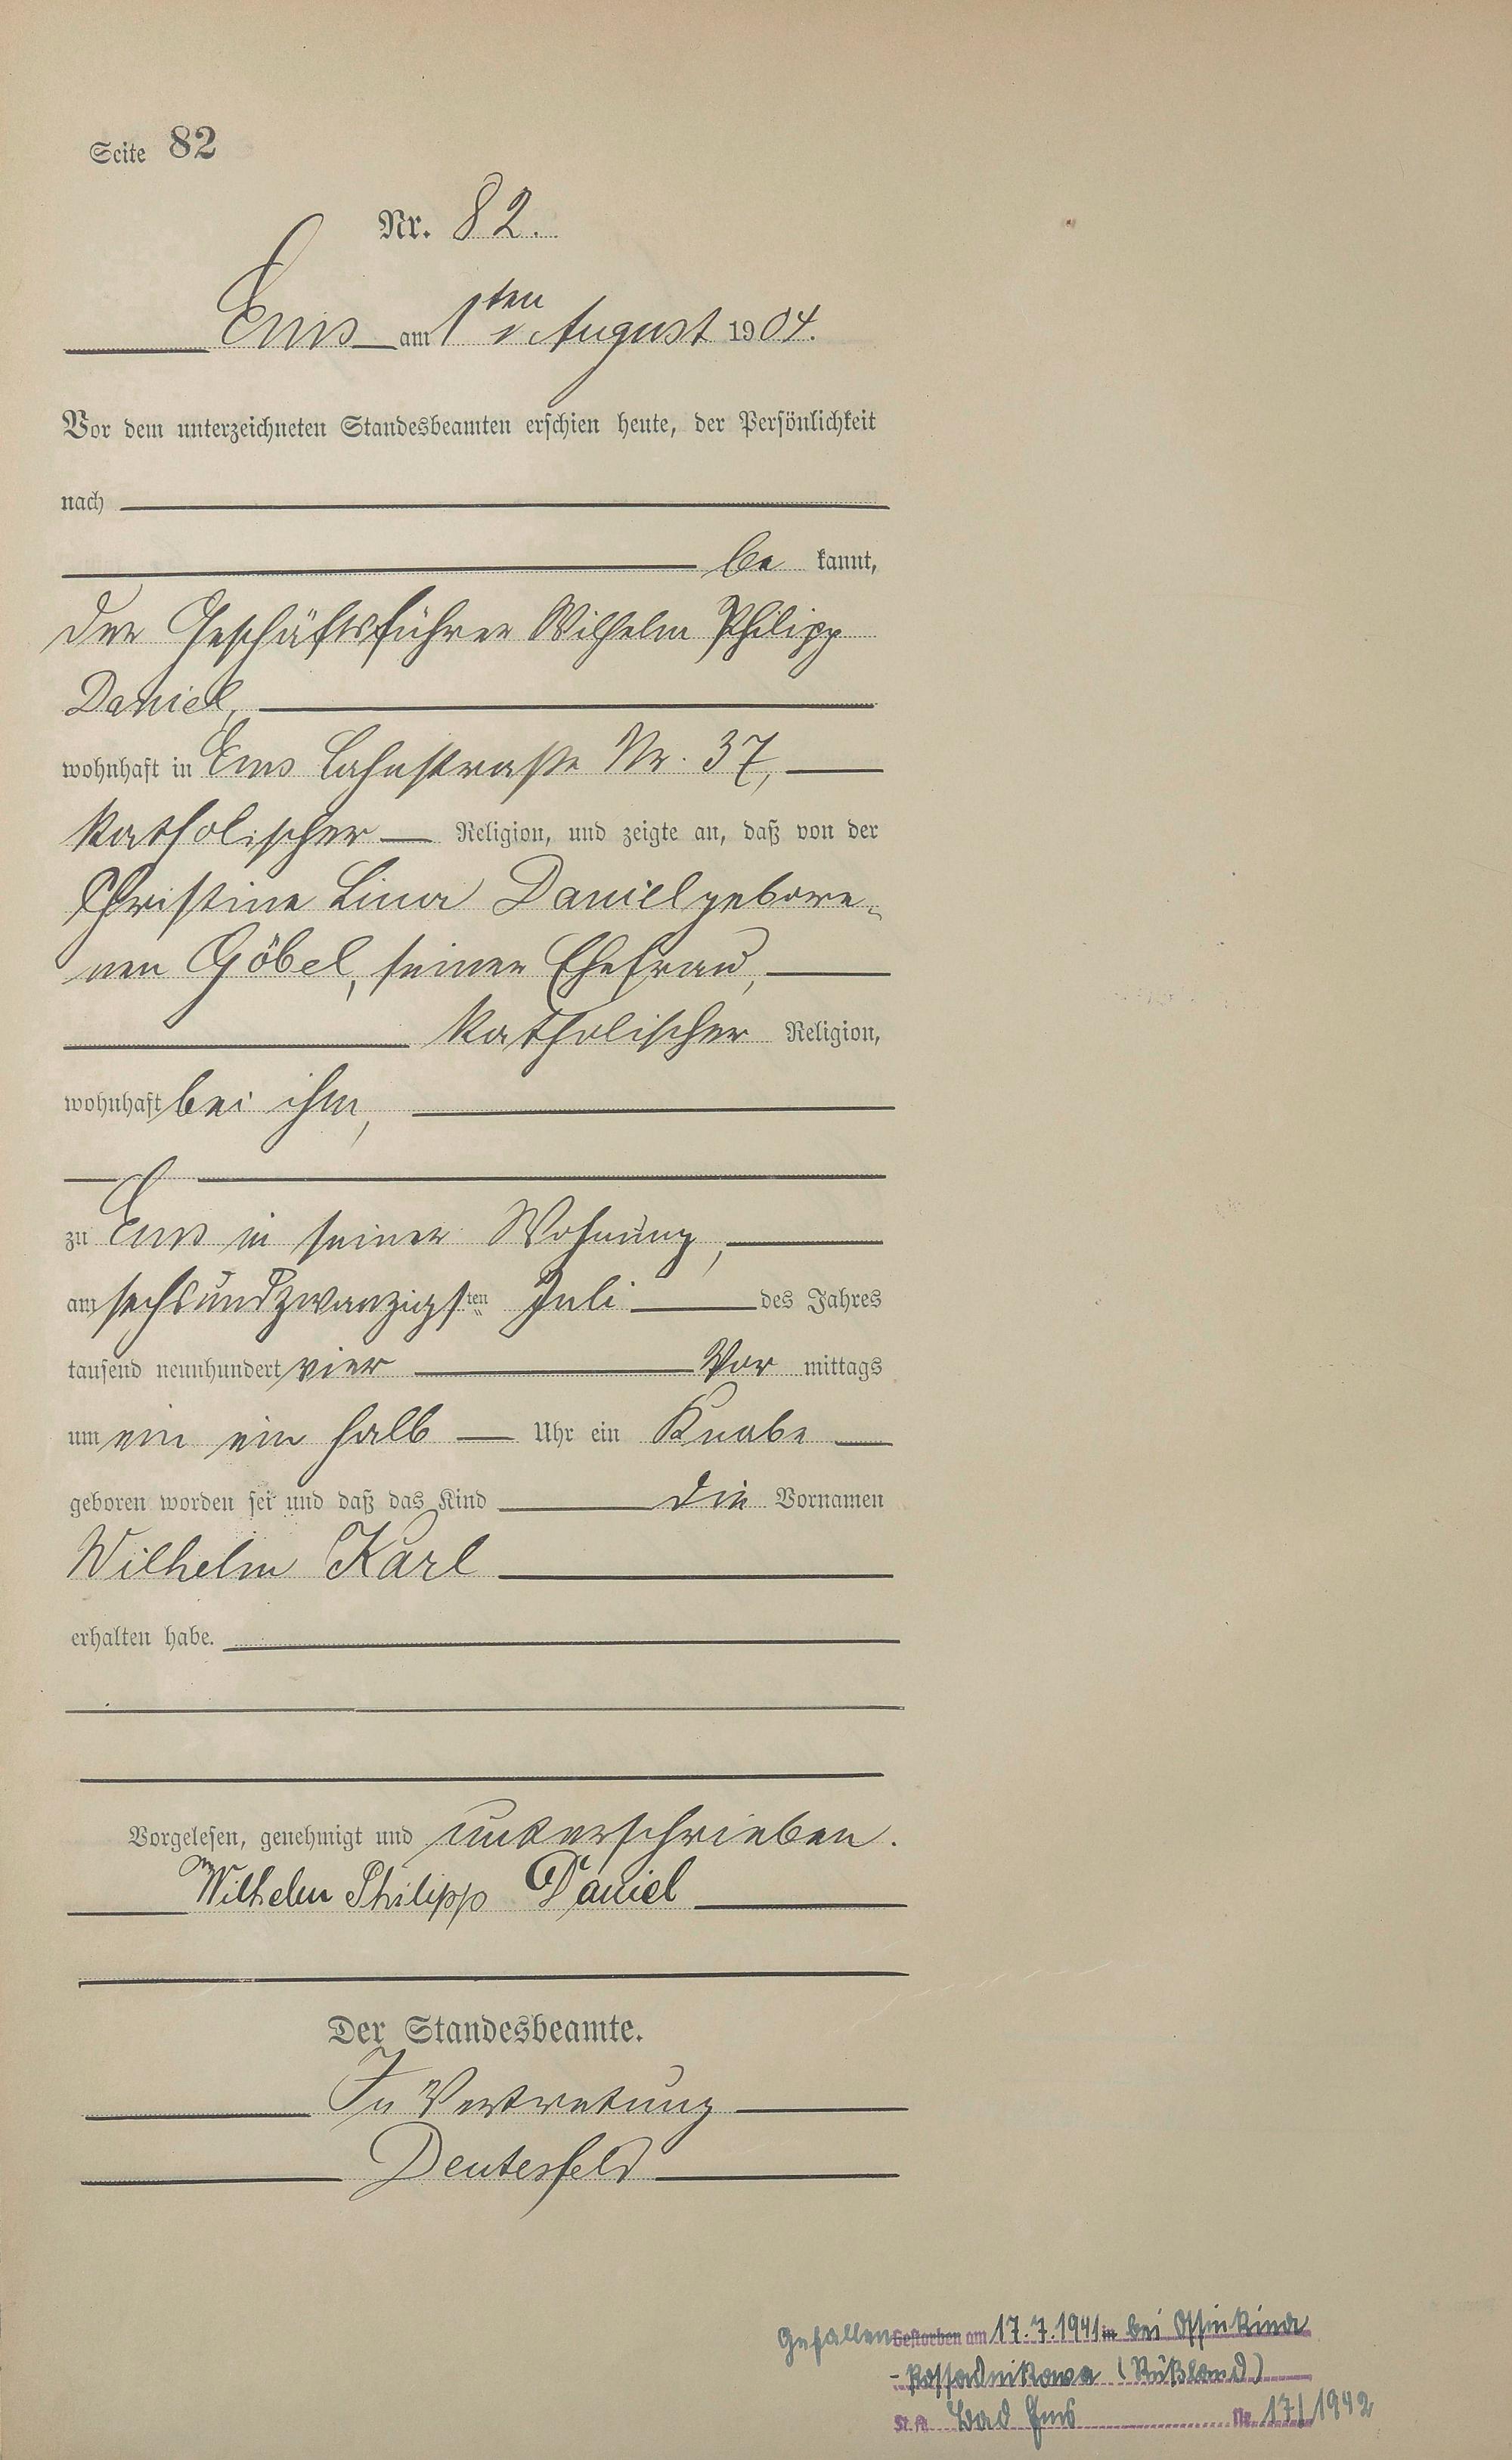 Seite 82
Nr. 82.
Ems am 1ten August 1904.
Vor dem unterzeichneten Standesbeamten erschien heute, der Persönlichkeit
nach
be kannt,
der Geschäftsführer Wilhelm Philipp
Daniel,
wohnhaft in Ems Lahnstraße Nr. 37,
katholischer Religion, und zeigte an, daß von der
Christine Lina Daniel gebore-
nen Göbel, seiner Ehefrau,
katholischer Religion,
wohnhaft bei ihm,
zu Ems in seiner Wohnung,
am sechsundzwanzigsten Juli des Jahres
tausend neunhundert vier Vor mittags
um ein ein halb Uhr ein Knabe
geboren worden sei und daß das Kind die Vornamen
Wilhelm Karl
erhalten habe.
Vorgelesen, genehmigt und unterschrieben.
Wilhelm Philipp Daniel
Der Standesbeamte.
In Vertretung
Deutesfeld
Gefallen Gestorben am 17.7.1941 in bei
(Rußland)
St. A. Bad Ems Nr. 17/1942